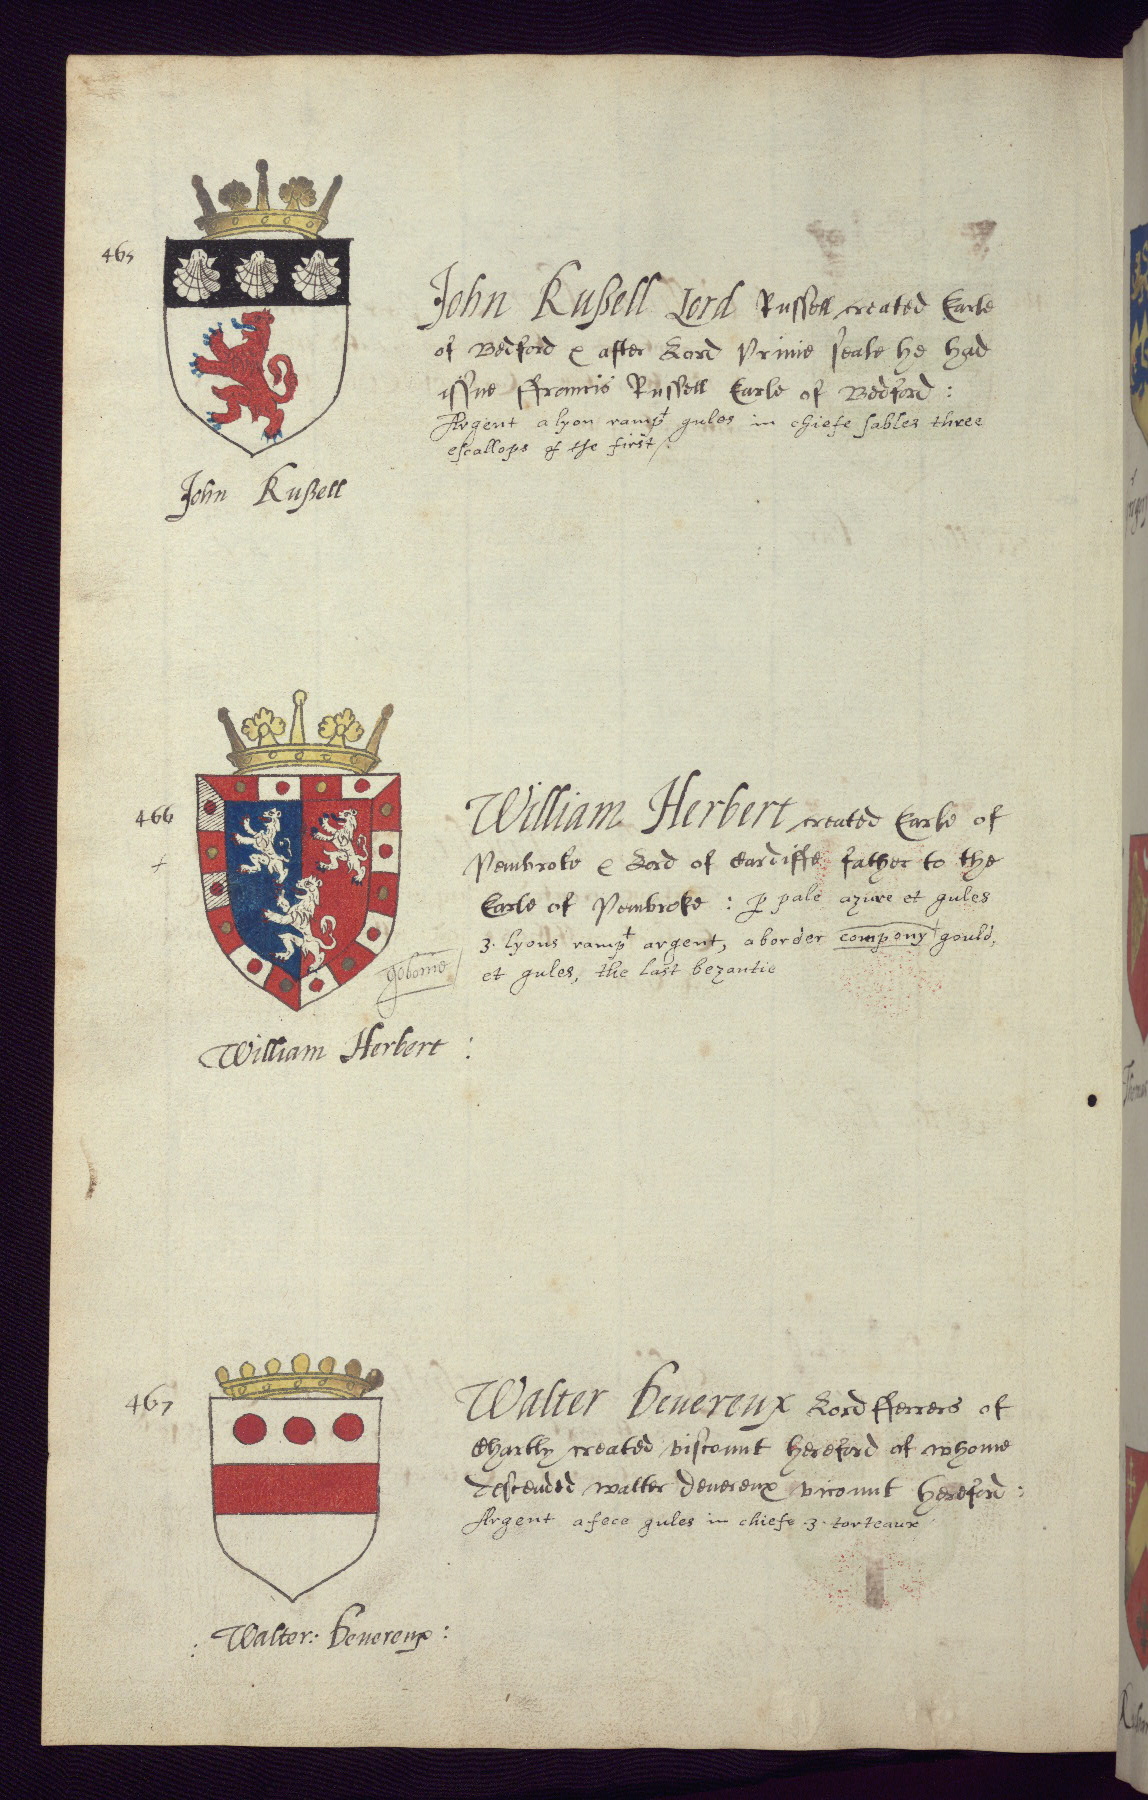 465
John Rußell Lord Russell created Earle
of Bedford & after Lord Privie seale he had
issue ffrancis Russell Earle of Bedford :
Argent a lyon rampt gules in chiefe sables three
escallops of the first /.
John Rußell
466
+
William Herbert created Earle of
Pembroke & Lord of Cardiffe father to the
Earle of Pembroke : p pale azure et gules
3. lyons rampt argent, a border compony + gould,
et gules, the last bezantie
gobonie
William Herbert :
467
Walter Deuereux Lord fferrers of
Chartly created viscount hereford of whome
descended walter Deuereux vicount hereford :
Argent a fece gules in chiefe .3. torteaux
: Walter : Deuereux :